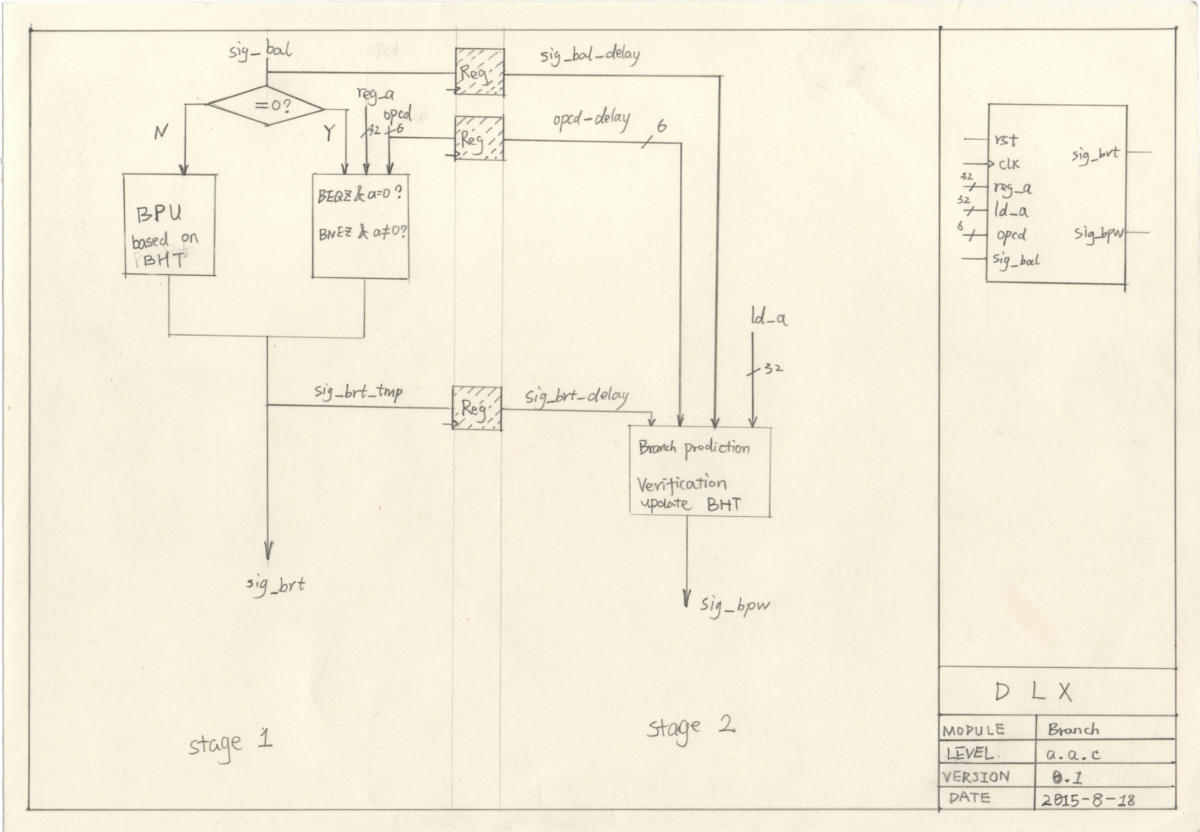 sig_bal
=0?
N
Y
reg_a
32
opcd
6
Reg
sig_bal_delay
Reg
opcd-delay
6
BPU
based on
BHT
BEQZ & a=0?
BNEZ & a≠0?
ld_a
32
sig_brt_tmp
Reg
sig_brt-delay
Branch prodiction
Verification
update BHT
sig_brt
sig_bpw
stage 1
stage 2
rst
clk
32
reg_a
32
ld_a
6
opcd
sig_bal
sig_brt
sig_bpw
DLX
MODULE
Branch
LEVEL.
a.a.c
VERSION
0.1
DATE
2015-8-18